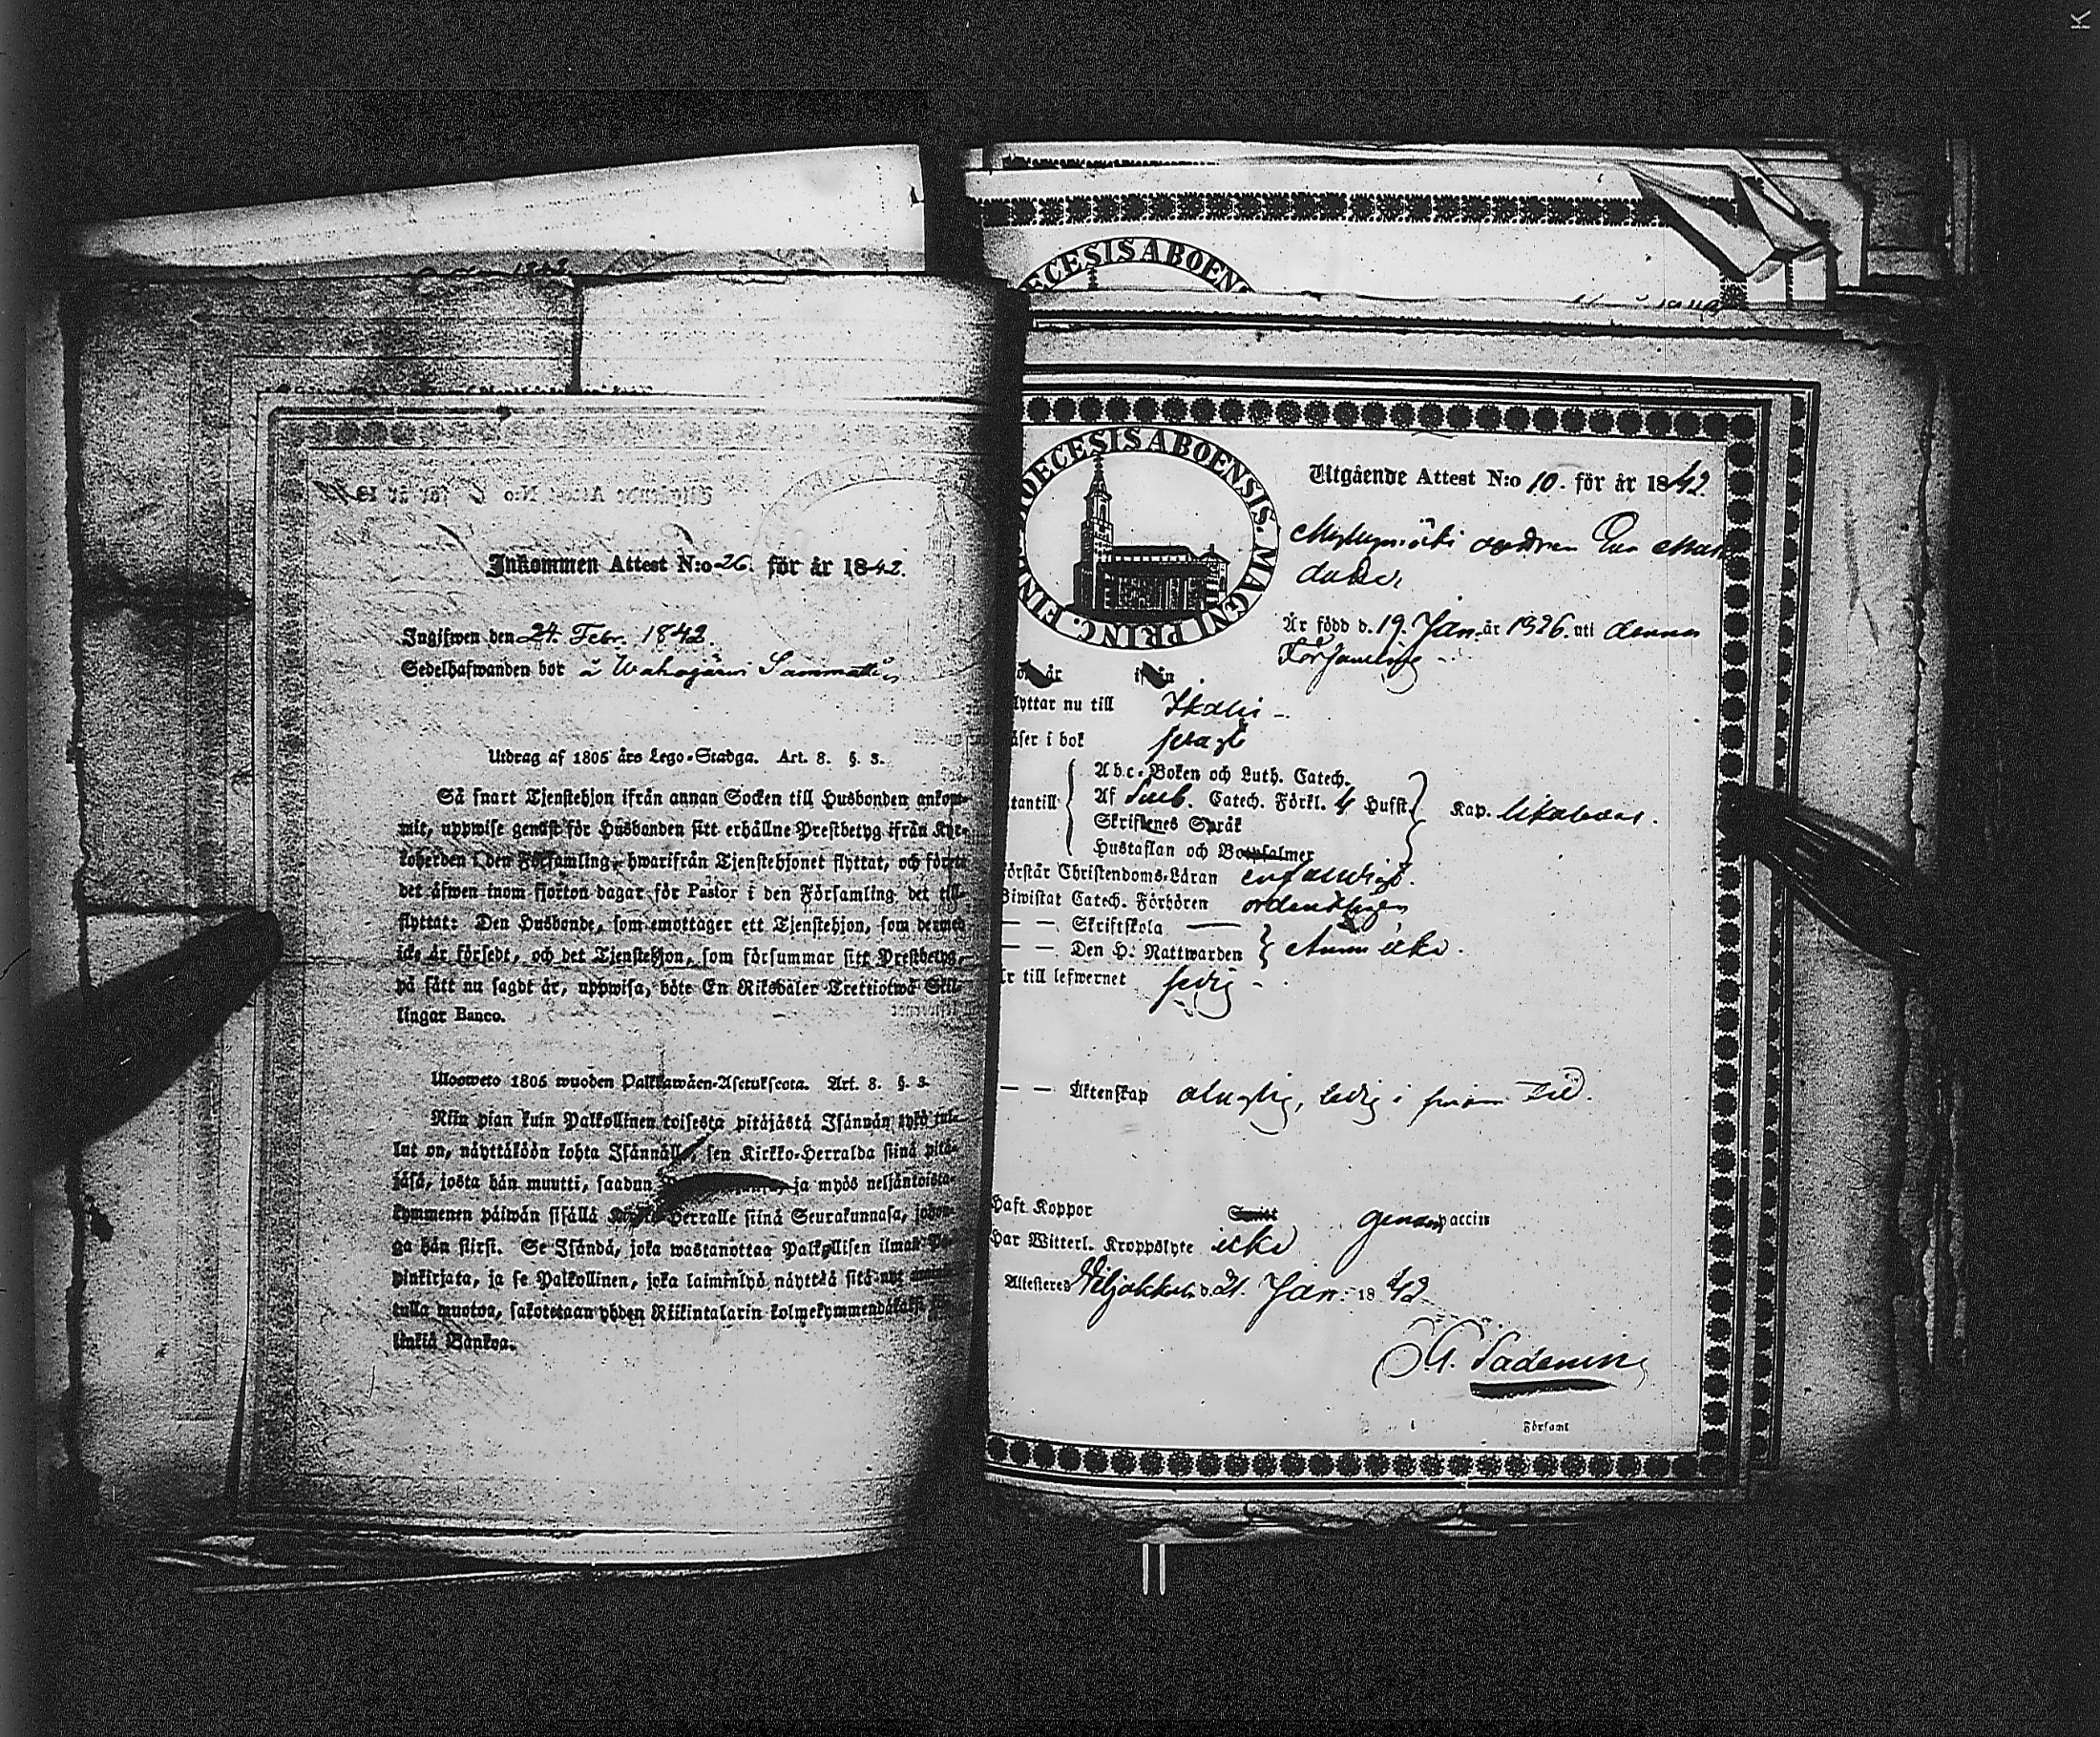 K
DIOECESIS ABOENSIS
Inkommen Attest N:o 26. för år 1842.
Ingifwen den 24. Febr. 1842.
Sedelhafwanden bor å Wahojärwi Sammatti
Utdrag af 1805 års Lego-Stadga. Art. 8. §. 3.
Så snart Tjenstehjon ifrån annan Socken till Husbonden ankom-
mit, uppwise genast för Husbonden sitt erhållne Prestbetyg ifrån Kyr-
koherden i den Församling, hwarifrån Tjenstehjonet flyttat, och förete
det äfwen inom fjorton dagar för Pastor i den Församling det till-
flyttat: Den Husbonde, som emottager ett Tjenstehjon, som dermed
icke är försedt, och det Tjenstehjon, som försummar sitt Prestbetyg,
på sätt nu sagdt är, uppwisa, böte En Riksdaler Trettiotwå Skil-
lingar Banco.
Ulosweto 1805 wuoden Palkkawäen-Asetuksesta. Art. 8. §. 3.
Niin pian kuin Palkollinen toisesta pitäjästä Isännän tykö tul-
lut on, näyttäköön kohta Isännälle, sen Kirkko-Herralda siinä pitä-
jäsä, josta hän muutti, saadun ja myös neljäntoista-
kymmenen päiwän sisällä Kirkko Herralle siinä Seurakunnasa, johon-
ga hän siirsi. Se Isändä, joka wastanottaa Palkollisen ilman Pa-
pinkirjata, ja se Palkollinen, joka laiminlyö näyttää sitä nyt
tulla muotoa, sakotetaan yhden Riikintalarin kolmekymmendäkaksi
linkiä Bankoa.
DIOECESIS ABOENSIS. MAGNI PRINC. FINL.
Utgående Attest N:o 10. för år 1842.
Eva
Är född d. 19. Jan. år 1826. uti denna
Församling
flyttar nu till Ikalis
Läser i bok
utantill
Abc-Boken och Luth. Catech.
Af Sveb. Catech. Förkl. 4 Hufst.
Kap.
Skriftenes Språk
Hustaflan och Botpsalmer
Förstår Christendoms-Läran
Biwistat Catech. Förhören ordentligen
— — Skriftskola —
— — Den H. Nattwarden
Ännu icke.
Är till lefwernet
— — Äktenskap ledig
Haft Koppor genom vaccin
Har Witterl. Kroppslyte icke
Attesteres Wiljakkala d. 21. Jan. 1842
Församl